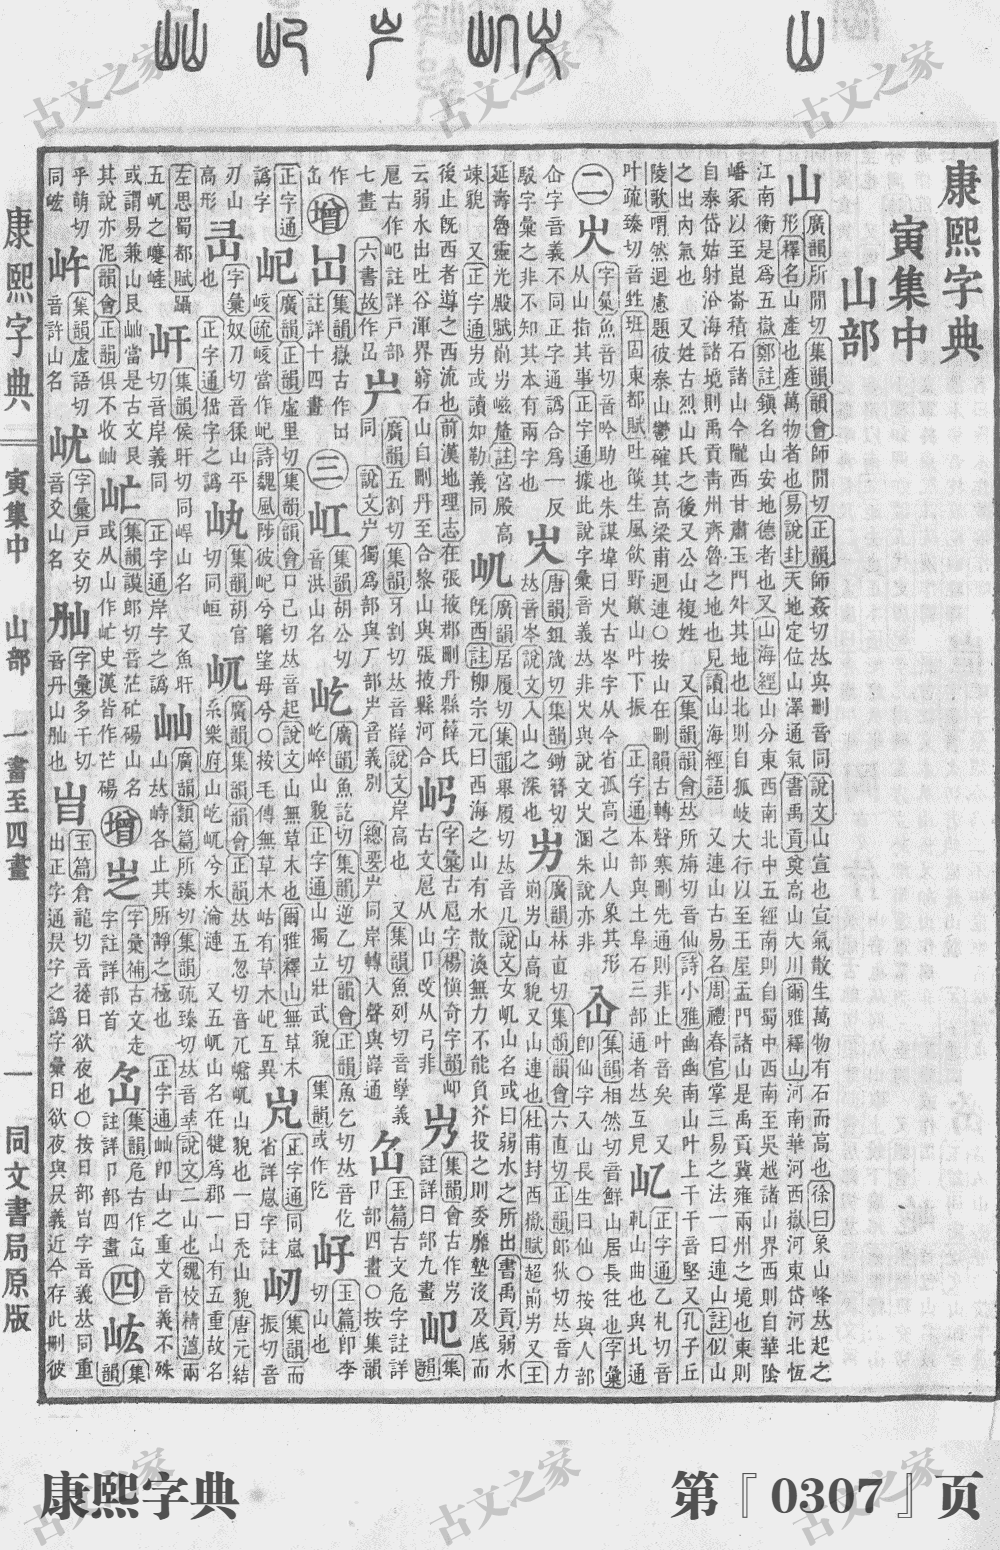 康熙字典
寅集中
山部
山
廣韻所閒切集韻韻會師閒切正韻師姦切𠀤與刪音同說文山宣也宣氣散生萬物有石而高也徐曰象山峰𠀤起之
形釋名山產也產萬物者也易說卦天地定位山澤通氣書禹貢奠高山大川爾雅釋山河南華河西嶽河東岱河北恆
江南衡是爲五嶽鄭註鎭名山安地德者也又山海經山分東西南北中五經南則自蜀中西南至吳越諸山界西則自華陰
嶓冢以至崑崙積石諸山今隴西甘肅玉門外其地也北則自狐岐大行以至王屋孟門諸山是禹貢冀雍兩州之境也東則
自泰岱姑射汾海諸境則禹貢靑州齊魯之地也見讀山海經語 又連山古易名周禮春官掌三易之法一曰連山註似山
之出內氣也 又姓古烈山氏之後又公山複姓 又集韻韻會𠀤所旃切音仙詩小雅幽幽南山叶上干干音堅又孔子丘
陵歌喟然迴慮題彼泰山鬱確其高梁甫迴連○按山在刪韻古轉聲寒刪先通則非止叶音矣 又
叶疏臻切音甡班固東都賦吐燄生風欱野歕山叶下振 正字通本部與土阜石三部通者𠀤互見
乢 正字通乙札切音軋山曲也與圠通
二
字彙魚音切音吟助也朱謀㙔曰火古岑字从今省孤高之山人象其形
从山指其事正字通據此說字彙音義𠀤非火與說文㞥溷朱說亦非
仚 集韻相然切音鮮山居長往也字彙
卽仙字入山長生曰仙○按與人部
仚字音義不同正字通譌合爲一反
駁字彙之非不知其本有兩字也
㞥 唐韻鉏箴切集韻鋤簪切
𠀤音岑說文入山之深也
屴 廣韻林直切集韻韻會六直切正韻郎狄切𠀤音力
崱屴山高貌又山連也杜甫封西嶽賦超崱屴又王
延壽魯靈光殿賦崱屴嵫釐註宮殿高
竦貌 又正字通屴或讀如勒義同
屼 廣韻居履切集韻舉履切𠀤音几說文女屼山名或曰弱水之所出書禹貢弱水
旣西註柳宗元曰西海之山有水散渙無力不能負芥投之則委靡墊沒及底而
後止旣西者導之西流也前漢地理志在張掖郡刪丹縣薛氏
云弱水出吐谷渾界窮石山自刪丹至合黎山與張掖縣河合
字彙古㞾字楊愼奇字韻㞾
古文㞾从山卩攺从弓非
集韻會古作岃
註詳曰部九畫
集韻
㞾古作屺註詳戸部
七畫 六書故作岊
屵 廣韻五割切集韻牙割切𠀤音薛說文岸高也 又集韻魚列切音孼義
同 說文屵獨爲部與厂部屵音義別 總要屵同岸轉入聲與嶭通
玉篇古文危字註詳
卩部四畫○按集韻
作
㞩
增
集韻嶽古作𡴯
註詳十四畫
三
屸 集韻胡公切
音洪山名
屹 廣韻魚訖切集韻逆乙切韻會正韻魚乞切𠀤音仡
屹崪山貌正字通山獨立壯武貌 集韻或作圪
玉篇卽李
切山也
正字通
譌字
屺 廣韻正韻虛里切集韻韻會口己切𠀤音起說文山無草木也爾雅釋山無草木
峐疏峐當作屺詩魏風陟彼屺兮瞻望母兮○按毛傳無草木岵有草木屺互異
正字通同嵐
省詳嵐字註
屻 集韻而
振切音
刃山
高形
字彙奴刀切音猱山平
也 正字通㺜字之譌
集韻胡官
切同峘
屼 廣韻集韻韻會正韻𠀤五忽切音兀嶱屼山貌也一曰禿山貌唐元結
系樂府山屹屼兮水淪漣 又五屼山名在犍爲郡一山有五重故名
左思蜀都賦躡
五屼之蹇嵼
屽 集韻侯旰切同㟁山名 又魚旰
切音岸義同 正字通岸字之譌
屾 廣韻類篇所臻切集韻疏臻切𠀤音莘說文二山也魏校精蘊兩
山𠀤峙各止其所靜之極也 正字通屾卽山之重文音義不殊
或謂易兼山艮屾當是古文艮
其說亦泥韻會正韻俱不收屾
集韻謨郎切音茫𡵀碭山名
或从山作𡵀史漢皆作芒碭
增
字彙補古文走
字註詳部首
集韻危古作㞩
註詳卩部四畫
四
集韻
乎萌切
同㟅
集韻虛語切
音許山名
字彙戸交切
音爻山名
字彙多千切
音丹山𡵆也
玉篇倉龍切音蓯日欲夜也○按日部㫐字音義𠀤同重
出正字通㫐字之譌字彙日欲夜與㫐義近今存此刪彼
康熙字典
寅集中
山部
一畫至四畫
一
同文書局原版
康熙字典
第『0307』页
古文之家
古文之家
古文之家
古文之家
古文之家
古文之家